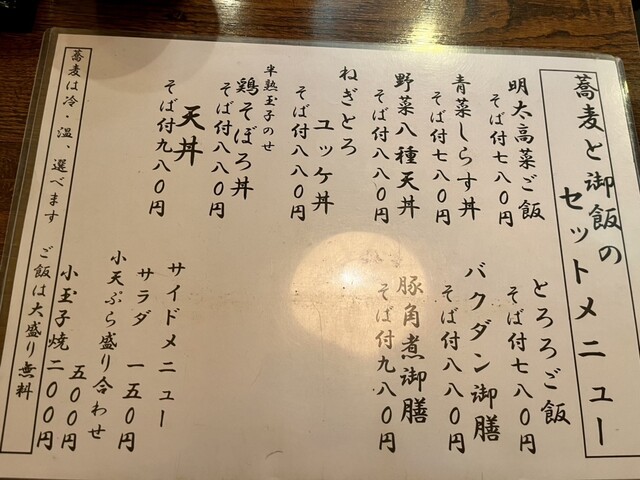 蕎麦と御飯の
セットメニュー
明太高菜ご飯
そば付七八〇円
青菜しらす丼
そば付七八〇円
野菜八種天丼
そば付八八〇円
ねぎとろ
ユッケ丼
そば付八八〇円
半熟玉子のせ
鶏そぼろ丼
そば付八八〇円
天丼
そば付九八〇円
とろろご飯
そば付七八〇円
バクダン御膳
そば付八八〇円
豚角煮御膳
そば付九八〇円
サイドメニュー
サラダ 一五〇円
小天ぷら盛り合わせ
五〇〇円
小玉子焼 二〇〇円
蕎麦は冷・温、選べます
ご飯は大盛り無料